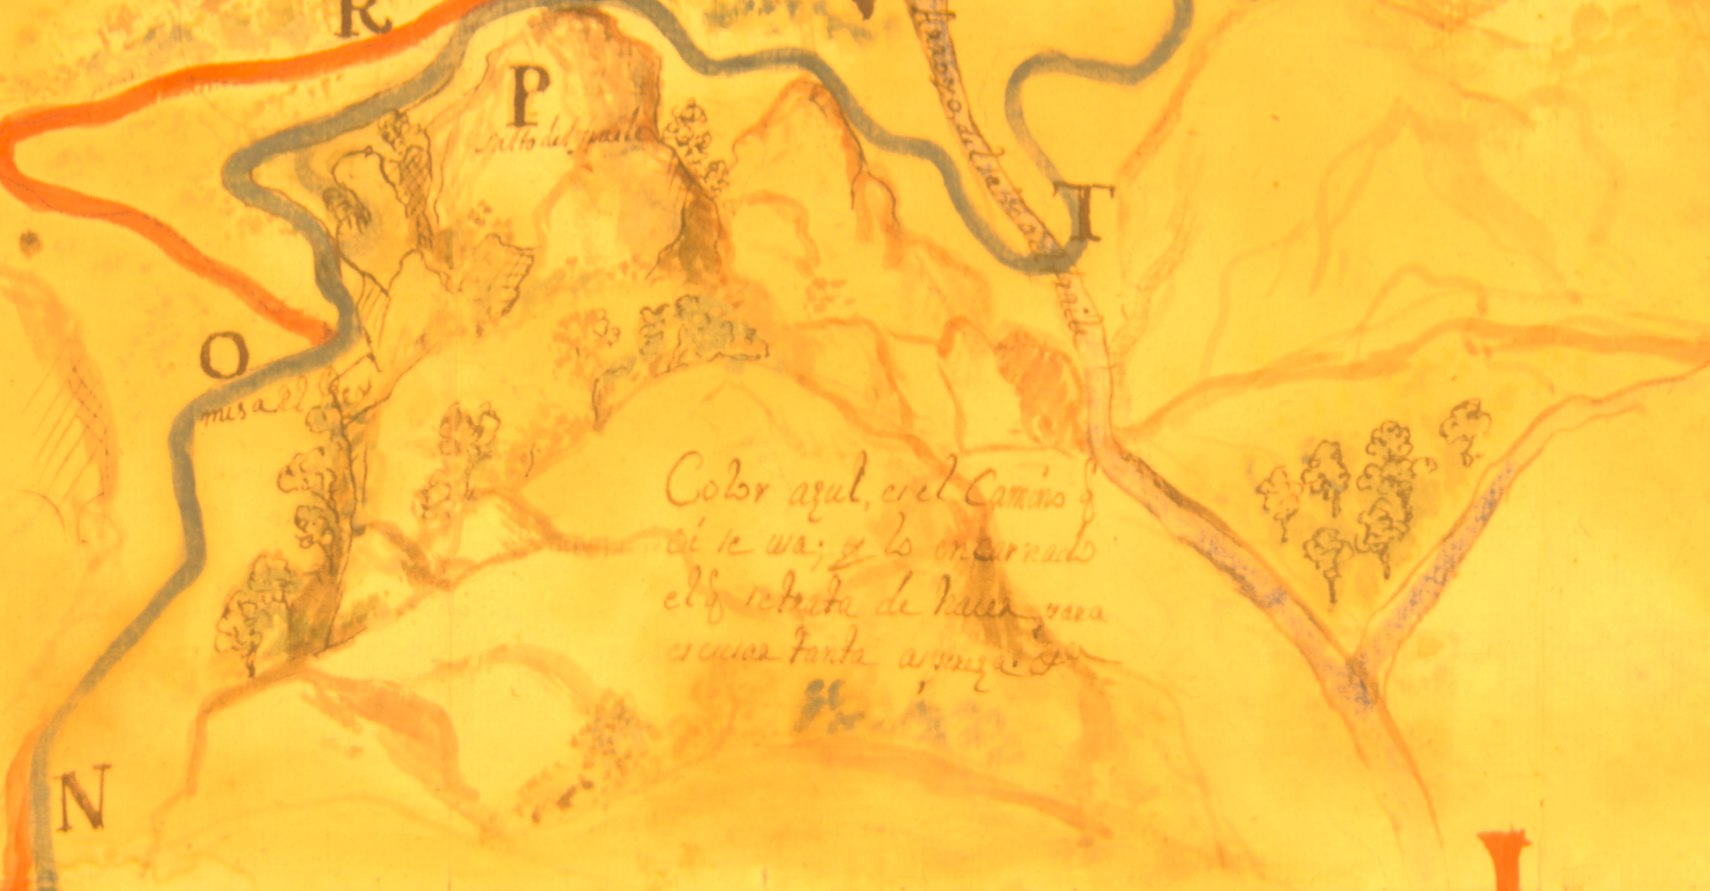 R
P
Salto del fraile
T
fraile
O
mesa el Rey
Color azul, es el Camino q̃
oi se usa; y lo encarnado
el q̃ se trata de hacer para
escusar tanta aspereza
N
I